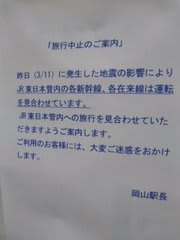 「旅行中止のご案内」
昨日（3/11）に発生した地震の影響により
JR東日本管内の各新幹線、各在来線は運転
を見合わせています。
JR東日本管内への旅行を見合わせていた
だきますようご案内します。
ご利用のお客様には、大変ご迷惑をおかけ
します。
岡山駅長